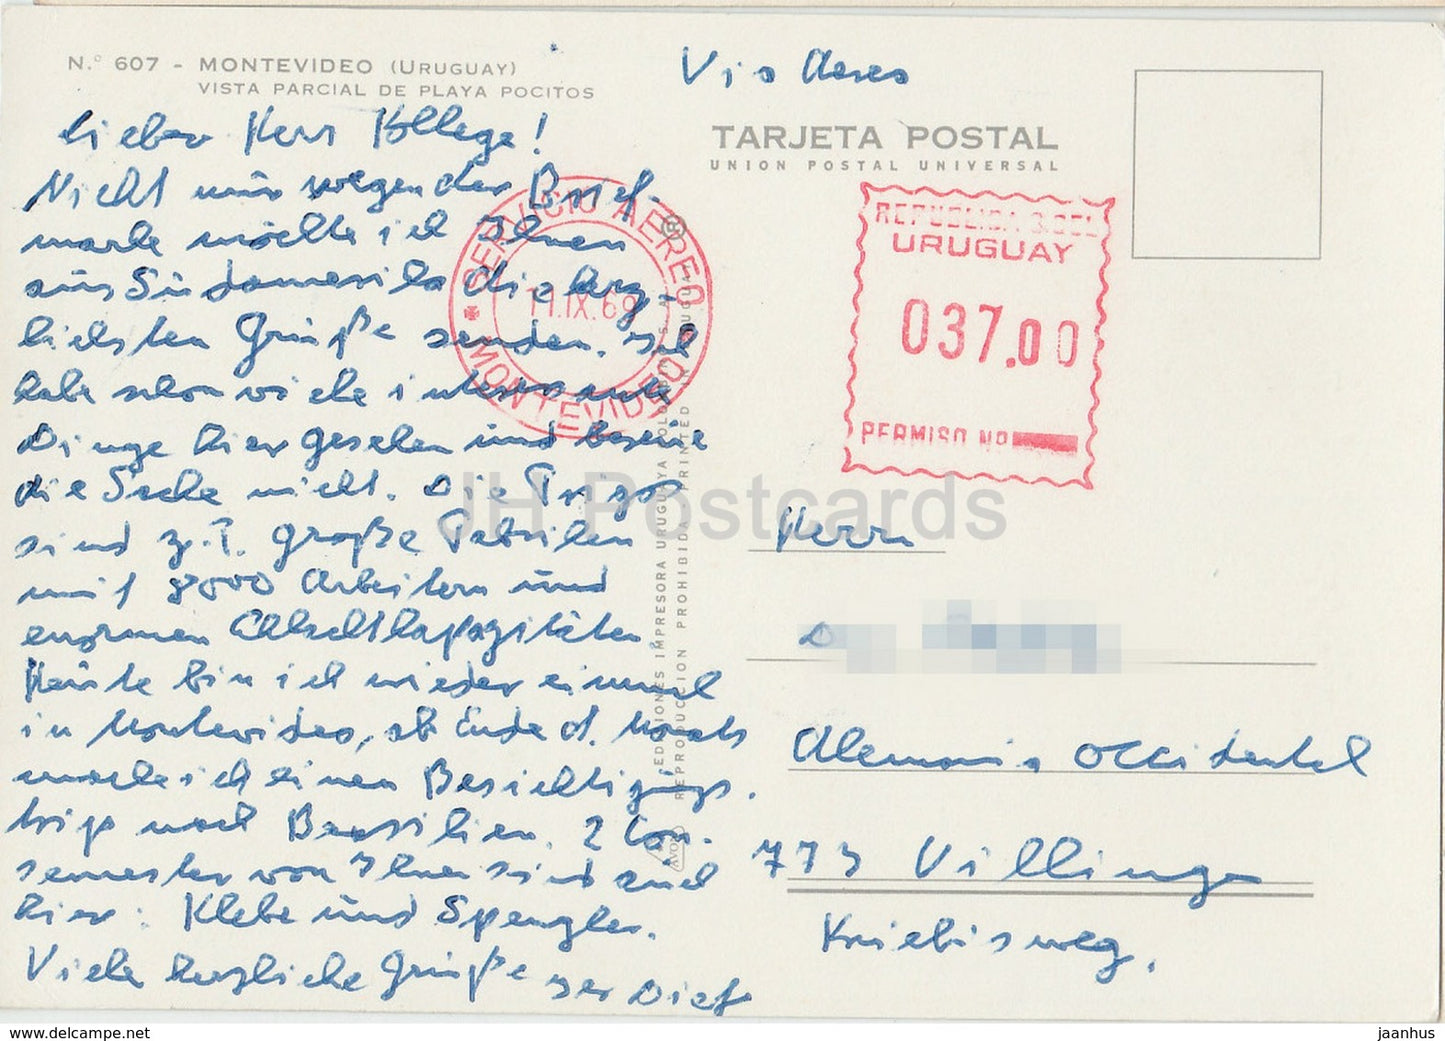 N.° 607 - MONTEVIDEO (URUGUAY)
VISTA PARCIAL DE PLAYA POCITOS
Lieber Herr Kollege!
Nicht nur wegen der Brief-
marke möchte ich Ihnen
aus Südamerika die herz-
lichsten Grüße senden. Ich
habe schon viele interessante
Dinge hier gesehen und bereue
die Sache nicht. Die
sind z.T. große Fabriken
mit 8000 Arbeitern und
enormen Schlachtkapazitäten
Heute bin ich wieder einmal
in Montevideo, ab Ende d. Monats
mache ich einen Besichtigungs-
trip nach Brasilien. 2 Con-
semester von Ihnen sind auch
hier: Klebe und Spengler.
Viele herzliche Grüße Ihr
Via Aereo
TARJETA POSTAL
UNION POSTAL UNIVERSAL
SERVICIO AEREO
11.IX.69
MONTEVIDEO
REPUBLICA O. DEL
URUGUAY
037.00
PERMISO Nº
EDICIONES IMPRESORA URUGUAYA COLOMBINO S.A.
REPRODUCCION PROHIBIDA PRINTED IN URUGUAY
JH Postcards
Herrn
Alemania Occidental
773 Villingen
Kniebisweg.
jaanhus